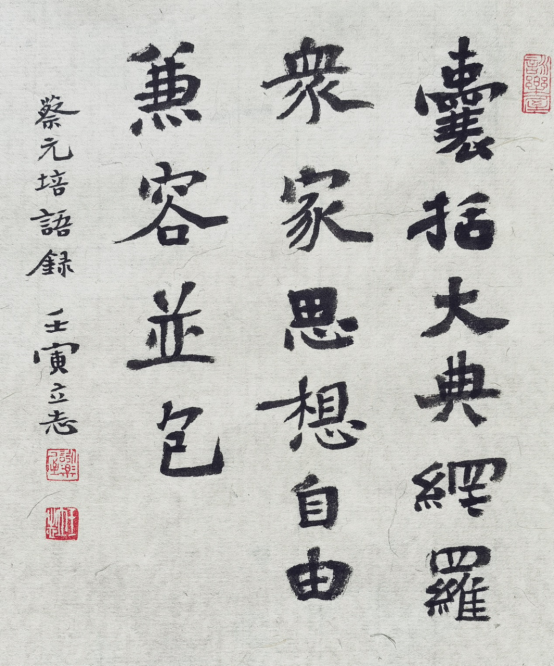 囊括大典網羅
衆家思想自由
兼容並包
蔡元培語録 壬寅立志